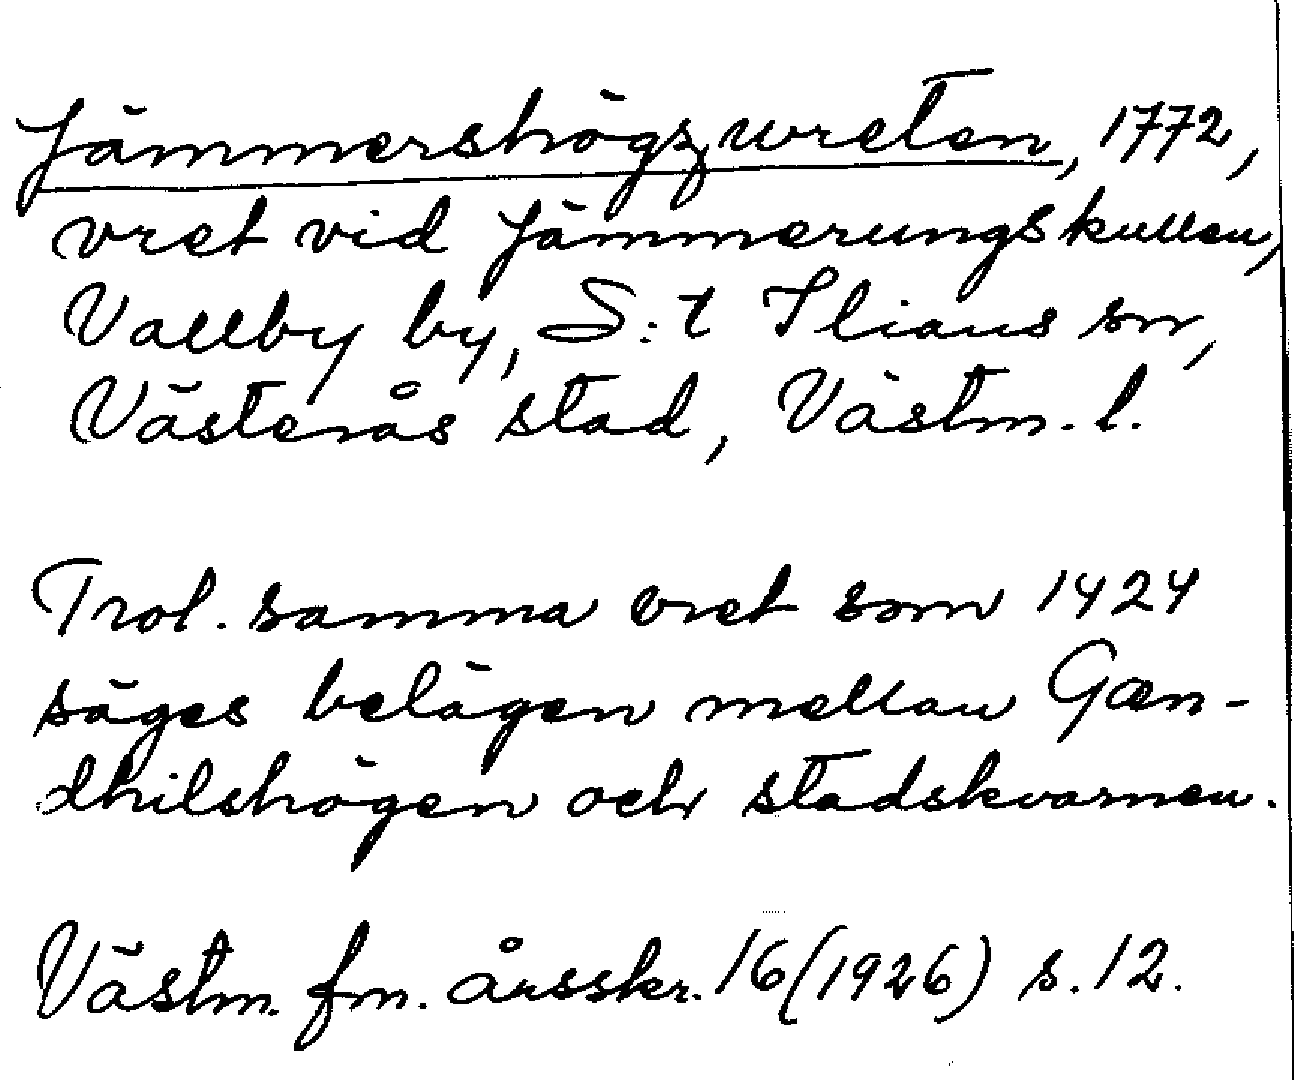 Jämmershögzwreten, 1772,
vret vid Jämmerungskullen,
Vallby by, S:t Ilians sn,
Västerås stad, Västm. l.
Trol. samma vret som 1424
säges belägen mellan Gæn-
dhilshögen och stadskvarnen.
Västm. fm. årsskr. 16 (1926) s. 12.